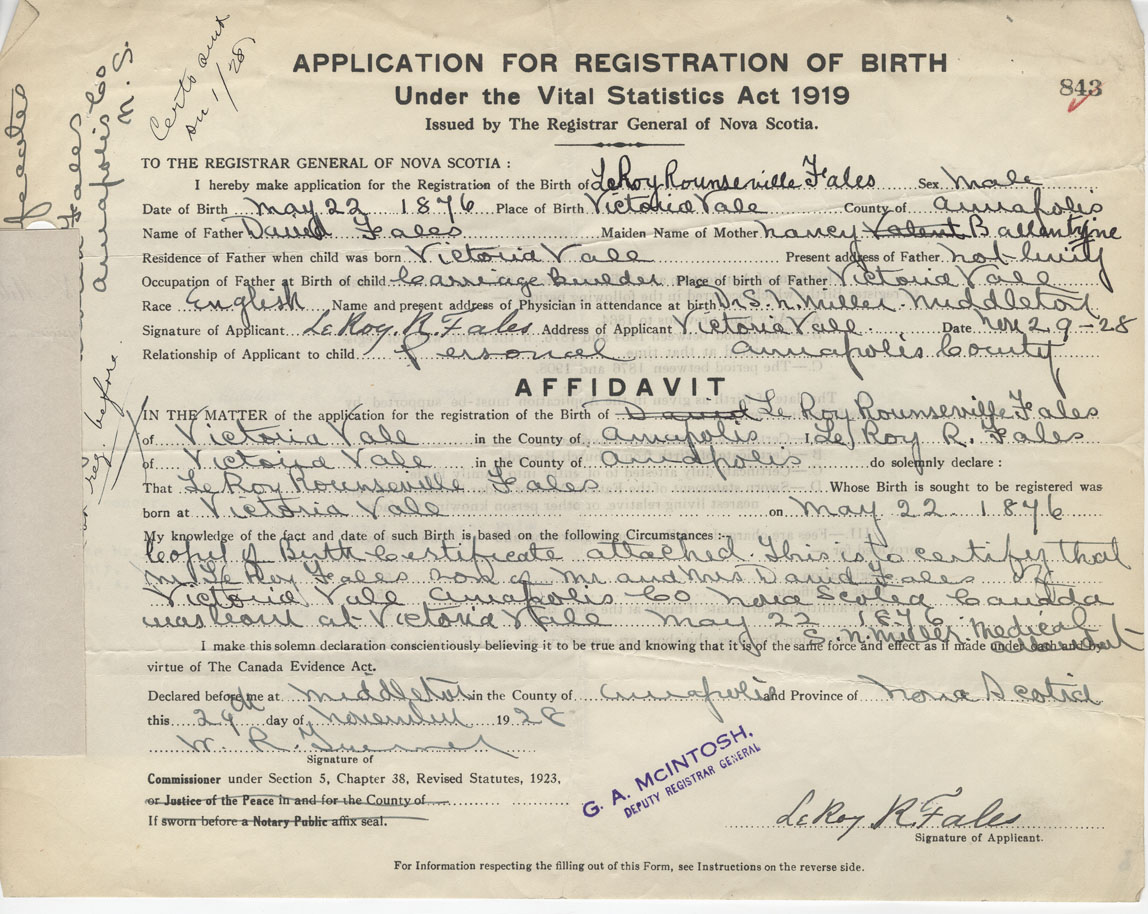 Certs sent
on 1/28
APPLICATION FOR REGISTRATION OF BIRTH
Under the Vital Statistics Act 1919
843
Issued by The Registrar General of Nova Scotia.
TO THE REGISTRAR GENERAL OF NOVA SCOTIA :
I hereby make application for the Registration of the Birth of LeRoy Rounseville Fales Sex Male
Date of Birth May 22 1876 Place of Birth Victoria Vale County of Annapolis
Name of Father David Fales Maiden Name of Mother Nancy Ballantyne
Residence of Father when child was born Victoria Vale Present address of Father not living
Occupation of Father at Birth of child Carriage builder Place of birth of Father Victoria Vale
Race English Name and present address of Physician in attendance at birth Dr S. N. Miller Middleton
Signature of Applicant LeRoy. R. Fales Address of Applicant Victoria Vale Date Nov 29-28
Relationship of Applicant to child personal Annapolis County
AFFIDAVIT
IN THE MATTER of the application for the registration of the Birth of David LeRoy Rounseville Fales
of Victoria Vale in the County of Annapolis I, LeRoy R. Fales
of Victoria Vale in the County of Annapolis do solemnly declare :
That LeRoy Rounseville Fales Whose Birth is sought to be registered was
born at Victoria Vale on May 22 1876
My knowledge of the fact and date of such Birth is based on the following Circumstances :-
Copy of Birth Certificate attached. This is to certify that
Mr LeRoy Fales son of Mr and Mrs David Fales of
Victoria Vale Annapolis Co Nova Scotia Canada
was born at Victoria Vale May 22 1876.
S. N. Miller Medical
I make this solemn declaration conscientiously believing it to be true and knowing that it is of the same force and effect as if made under oath and by
virtue of The Canada Evidence Act.
Declared before me at Middleton in the County of Annapolis and Province of Nova Scotia
this 29th day of November 1928
W. R.
Signature of
Commissioner under Section 5, Chapter 38, Revised Statutes, 1923,
or Justice of the Peace in and for the County of
If sworn before a Notary Public affix seal.
G. A. McINTOSH,
DEPUTY REGISTRAR GENERAL
LeRoy R Fales
Signature of Applicant.
For Information respecting the filling out of this Form, see Instructions on the reverse side.
Fales
Annapolis Co
N. S.
reg. before